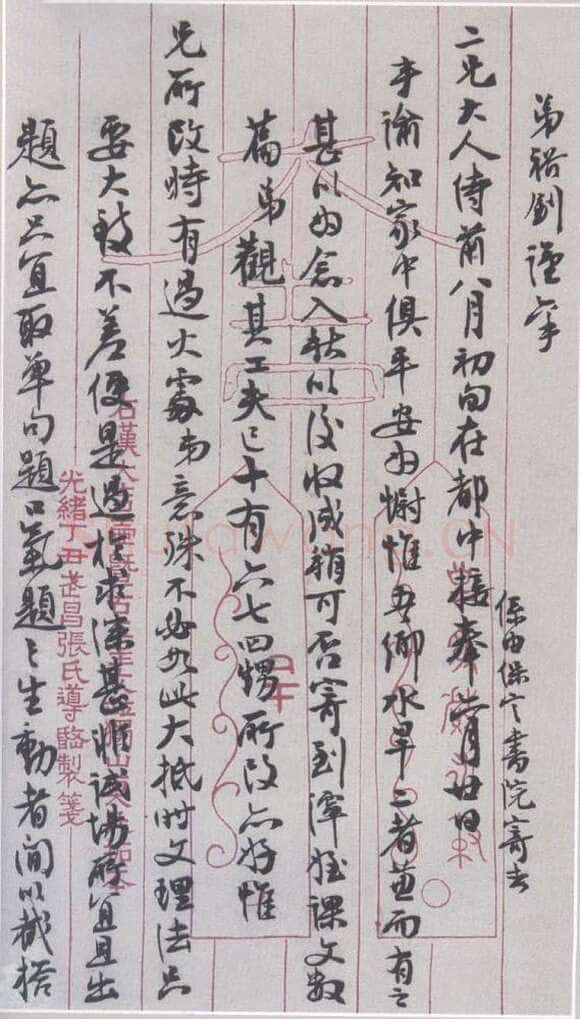 弟裕釗謹
二兄大人侍前八月初旬在都中接奉月廿日
係由保定書院寄去
手諭知家中俱平安為慰惟吾鄉水旱二者並而有之
甚以為念入秋以後收成稍可否寄到渾姪課文數
篇弟觀其工夫已十有六七四甥所改亦好惟
兄所改時有過火處弟意殊不必如此大抵時文理法只
要大致不差便是過於求深甚非試場所宜且出
題亦只宜取單句題口氣題之生動者間以截搭
光緒丁丑武昌張氏導臨製箋